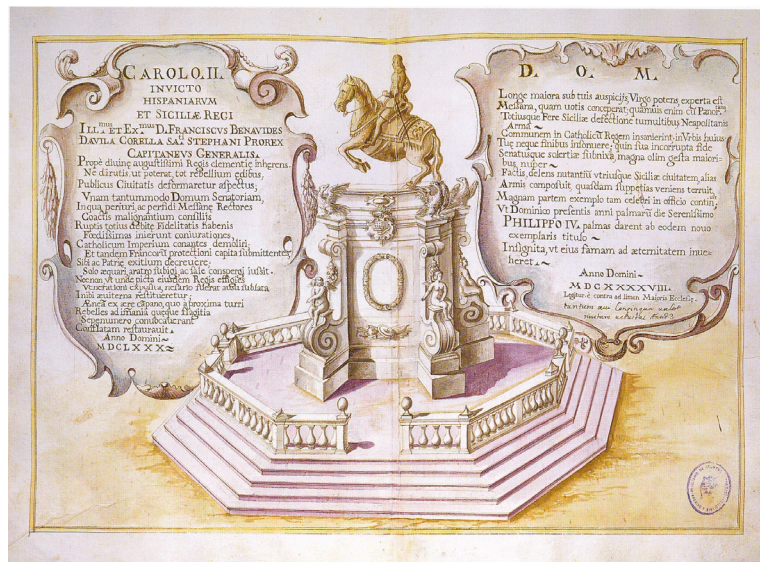 CAROLO. II.
INVICTO
HISPANIARVM
ET SICILIÆ REGI
ILL.mus ET EX.mus D. FRANCISCUS BENAVIDES
DAVILA CORELLA SA.ti STEPHANI PROREX
CAPITANEVS GENERALIS.
Prope diuine augustissimi Regis clementie inherens.
Ne dirutis, ut poterat, tot rebellium edibus,
Publicus Ciuitatis deformaretur aspectus;
Vnam tantummodo Domum Senatoriam,
In qua, periuri, ac perfidi Messane Rectores
Coactis malignantium consilijs
Ruptis totius debite Fidelitatis habenis
Fœdissimas inierunt coniurationes,
Catholicum Imperium conantes demoliri;
Et tandem Francorũ protectioni capita submittentes
Sibi ac Patrie exitium decreuere;
Solo æquari aratro subigi ac sale conspergi iussit.
Necnon ut unde picta eiusdem Regis effigies
ueneratione expulsa, nefario fuerat ausu sublata
Inibi æuiterna restitueretur;
Ænea ex ære capano, quo a proxima turri
Rebelles ad imania queque flagitia
Sepenumero conuocauerant
Conflatam restaurauit.
Anno Domini
MDCLXXX
D. O. M.
Longe maiora sub tuis auspicijs, Virgo potens, experta est
Messana, quam uotis conceperat; quamuis enim cũ Panor.tana
Totiusque Fere Siciliæ defectione tumultibus Neapolitanis
Arma
Communem in Catholicũ Regem insanierint, in Vrbis huius
Tue neque finibus insonuere; quin sua incorrupta fide
Senatusque solertia subnixa, magna olim gesta maiori-
bus, nuper
Factis, delens nutantiũ vtriusque Siciliæ ciuitatem, alias
Armis composuit, quasdam suppetias veniens terruit,
Magnam partem exemplo tam celebri in officio contin.uit
Vt Dominico presentis anni palmarũ die Serenissimo
PHILIPPO IV. palmas darent ab eodem nouo
exemplaris titulo
Insignita, vt eius famam ad æternitatem inue-
heret
Anno Domini
MDCXXXXVIII.
Legitur è contra ad limen Majoris Ecclesiæ